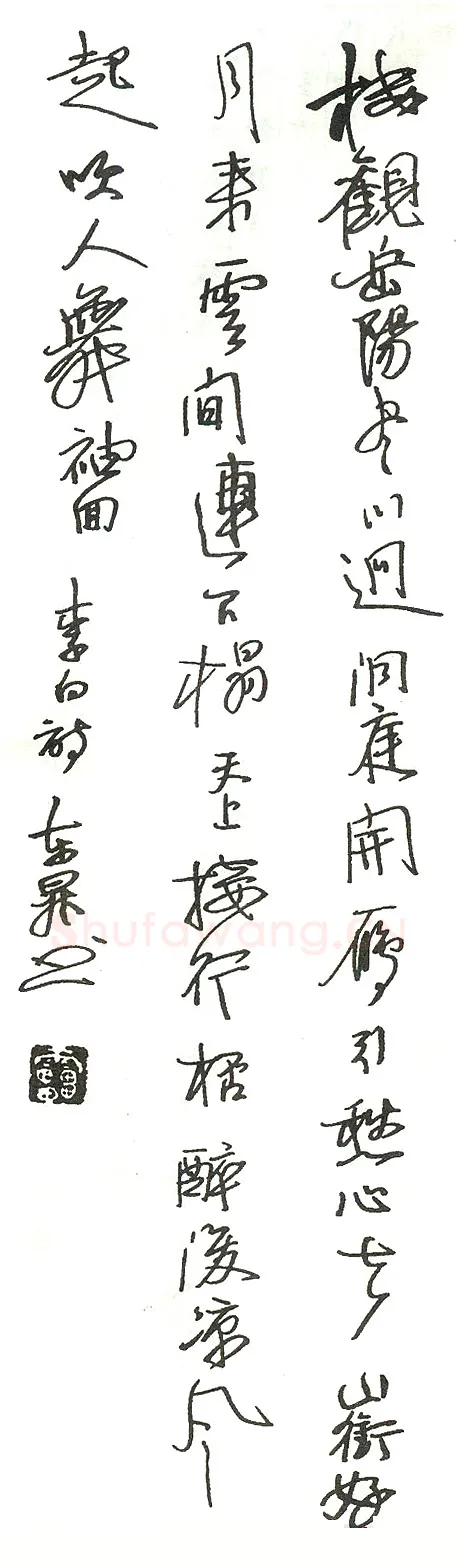 樓觀岳陽尽川迥洞庭開雁引愁心去山銜好
月来雲間連下榻天上接行桮醉後凉風
起吹人舞袖回 李白詩
Shufawang.CN